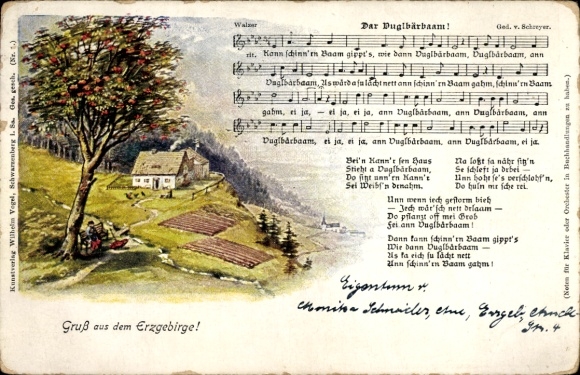 Walzer
Dar Vuglbärbaam!
Ged. v. Schreyer.
Kann schinn'rn Baam gippt's, wie dann Vuglbärbaam, Vuglbärbaam, ann
Vuglbärbaam, As wärd a su lächt nett ann schinn'rn Baam gahm, schinn'rn Baam
gahm, ei ja, — ei ja, ei ja, ann Vuglbärbaam, ann Vuglbärbaam, ann
Vuglbärbaam, ei ja, ei ja, ann Vuglbärbaam, ann Vuglbärbaam, ei ja.
Bei'n Kann't sen Haus
Stieht a Vuglbärbaam,
Do sitzt unn'rn Kann't
Sei Weibs'n denahm.
Na loßt sa nähr sitz'n
Se schleft ja drbei —
Unn hoht se's verschlofn,
Do huln mr sche rei.
Unn wenn iech gestorm bieh
— Iech wär'sch nett drlaam —
Do pflanzt off mei Grob
Fei ann Vuglbärbaam!
Dann kann schinn'rn Baam gippt's
Wie dann Vuglbärbaam —
As ka eich su lächt nett
Unn schinn'rn Baam gahm!
Kunstverlag Wilhelm Vogel, Schwarzenberg i. Sa. Ges. gesch. (No. 1.)
(Noten für Klavier oder Orchester in Buchhandlungen zu haben.)
Gruß aus dem Erzgebirge!
Eigentum v.
Monika Schmailer, Aue, Erzgeb,
Str. 4